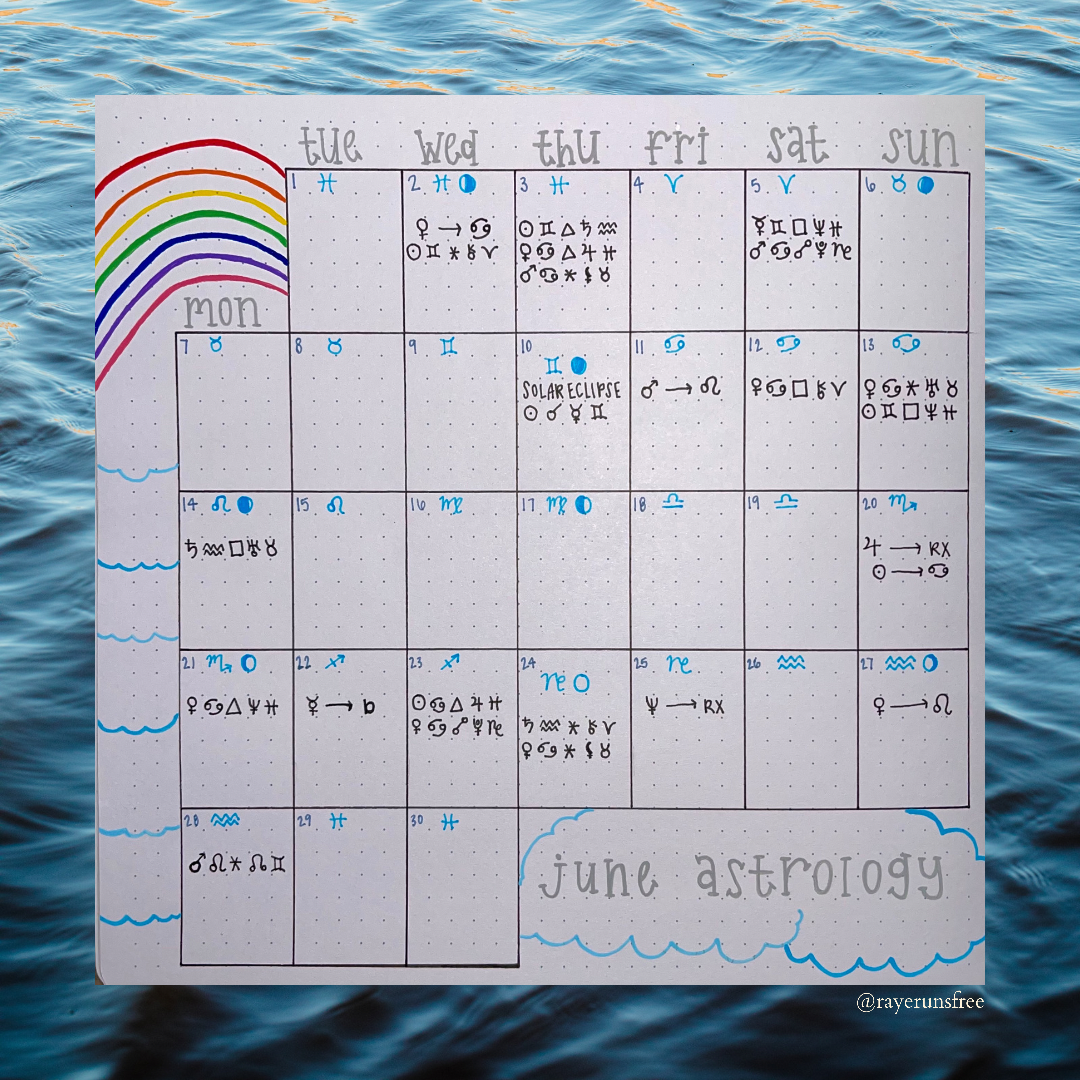 tue wed thu fri sat sun
mon
1 ♓
2 ♓
♀ → ♋
☉ ♊ ⚹ ⚷ ♈
3 ♓
☉ ♊ △ ♄ ♒
♀ ♋ △ ♃ ♓
♂ ♋ ⚹ ⚸ ♉
4 ♈
5 ♈
☿ ♊ □ ♆ ♓
♂ ♋ ☍ ♇ ♑
6 ♉
7 ♉
8 ♉
9 ♊
10
♊
SOLAR ECLIPSE
☉ ☌ ☿ ♊
11 ♋
♂ → ♌
12 ♋
♀ ♋ □ ⚷ ♈
13 ♋
♀ ♋ ⚹ ♅ ♉
☉ ♊ □ ♆ ♓
14 ♌
♄ ♒ □ ♅ ♉
15 ♌
16 ♍
17 ♍
18 ♎
19 ♎
20 ♏
♃ → RX
☉ → ♋
21 ♏
♀ ♋ △ ♆ ♓
22 ♐
☿ → D
23 ♐
☉ ♋ △ ♃ ♓
♀ ♋ ☍ ♇ ♑
24
♑
♄ ♒ ⚹ ⚷ ♈
♀ ♋ ⚹ ⚸ ♉
25 ♑
♆ → RX
26 ♒
27 ♒
♀ → ♌
28 ♒
♂ ♌ ⚹ ☊ ♊
29 ♓
30 ♓
june astrology
@rayerunsfree